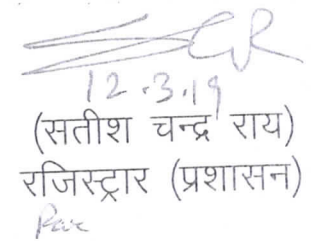 12.3.19
(सतीश चन्द्र राय)
रजिस्ट्रार (प्रशासन)